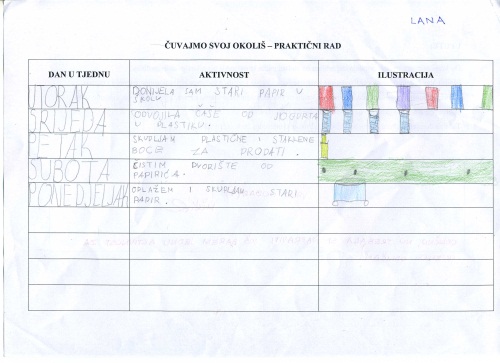 LANA
ČUVAJMO SVOJ OKOLIŠ – PRAKTIČNI RAD
DAN U TJEDNU AKTIVNOST ILUSTRACIJA
UTORAK DONIJELA SAM STARI PAPIR U
ŠKOLU
SRIJEDA ODVOJILA ČAŠE OD JOGURTA
U PLASTIKU.
PETAK SKUPLJAM PLASTIČNE I STAKLENE
BOCE ZA PRODATI.
SUBOTA ČISTIM DVORIŠTE OD
PAPIRIĆA.
PONEDJELJAK I SKUPLJAM STARI
PAPIR.